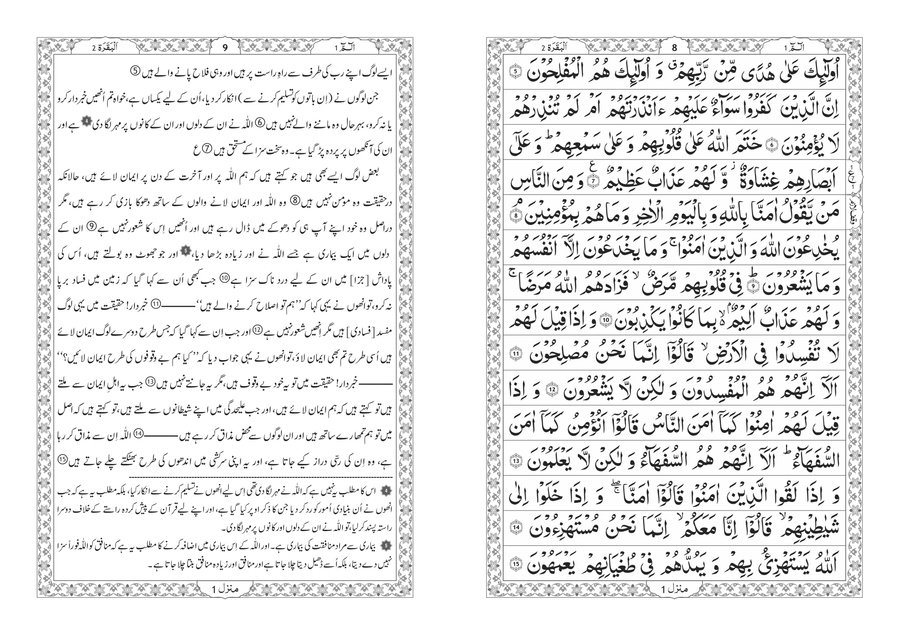 الٓمّٓ 1
8
اَلْبَقَرَة 2
اُولٰٓئِكَ عَلٰى هُدًى مِّنْ رَّبِّهِمْ ۗ وَ اُولٰٓئِكَ هُمُ الْمُفْلِحُوْنَ ۝5
اِنَّ الَّذِيْنَ كَفَرُوْا سَوَآءٌ عَلَيْهِمْ ءَاَنْذَرْتَهُمْ اَمْ لَمْ تُنْذِرْهُمْ
لَا يُؤْمِنُوْنَ ۝6 خَتَمَ اللّٰهُ عَلٰى قُلُوْبِهِمْ وَ عَلٰى سَمْعِهِمْ ؕ وَ عَلٰٓى
اَبْصَارِهِمْ غِشَاوَةٌ ؗ وَّ لَهُمْ عَذَابٌ عَظِيْمٌ ۝7 وَ مِنَ النَّاسِ
مَنْ يَّقُوْلُ اٰمَنَّا بِاللّٰهِ وَ بِالْيَوْمِ الْاٰخِرِ وَ مَا هُمْ بِمُؤْمِنِيْنَ ۝8
يُخٰدِعُوْنَ اللّٰهَ وَ الَّذِيْنَ اٰمَنُوْا ۚ وَ مَا يَخْدَعُوْنَ اِلَّاۤ اَنْفُسَهُمْ
وَ مَا يَشْعُرُوْنَ ۝9 فِيْ قُلُوْبِهِمْ مَّرَضٌ ۙ فَزَادَهُمُ اللّٰهُ مَرَضًا ۚ
وَ لَهُمْ عَذَابٌ اَلِيْمٌۢ ۙ بِمَا كَانُوْا يَكْذِبُوْنَ ۝10 وَ اِذَا قِيْلَ لَهُمْ
لَا تُفْسِدُوْا فِي الْاَرْضِ ۙ قَالُوْۤا اِنَّمَا نَحْنُ مُصْلِحُوْنَ ۝11
اَلَاۤ اِنَّهُمْ هُمُ الْمُفْسِدُوْنَ وَ لٰكِنْ لَّا يَشْعُرُوْنَ ۝12 وَ اِذَا
قِيْلَ لَهُمْ اٰمِنُوْا كَمَاۤ اٰمَنَ النَّاسُ قَالُوْۤا اَنُؤْمِنُ كَمَاۤ اٰمَنَ
السُّفَهَآءُ ؕ اَلَاۤ اِنَّهُمْ هُمُ السُّفَهَآءُ وَ لٰكِنْ لَّا يَعْلَمُوْنَ ۝13
وَ اِذَا لَقُوا الَّذِيْنَ اٰمَنُوْا قَالُوْۤا اٰمَنَّا ۖۚ وَ اِذَا خَلَوْا اِلٰى
شَيٰطِيْنِهِمْ ۙ قَالُوْۤا اِنَّا مَعَكُمْ ۙ اِنَّمَا نَحْنُ مُسْتَهْزِءُوْنَ ۝14
اَللّٰهُ يَسْتَهْزِئُ بِهِمْ وَ يَمُدُّهُمْ فِيْ طُغْيَانِهِمْ يَعْمَهُوْنَ ۝15
منزل 1
الٓمّٓ 1
9
اَلْبَقَرَة 2
ایسے لوگ اپنے رب کی طرف سے راہِ راست پر ہیں اور وہی فلاح پانے والے ہیں ⑤
جن لوگوں نے (اِن باتوں کو تسلیم کرنے سے) انکار کر دیا، اُن کے لیے یکساں ہے، خواہ تم اُنھیں خبردار کرو
یا نہ کرو، بہرحال وہ ماننے والے نہیں ہیں ⑥ اللہ نے ان کے دلوں اور ان کے کانوں پر مہر لگا دی ہے اور
ان کی آنکھوں پر پردہ پڑ گیا ہے۔ وہ سخت سزا کے مستحق ہیں ⑦ ع
بعض لوگ ایسے بھی ہیں جو کہتے ہیں کہ ہم اللہ پر اور آخرت کے دن پر ایمان لائے ہیں، حالانکہ
درحقیقت وہ مؤمن نہیں ہیں ⑧ وہ اللہ اور ایمان لانے والوں کے ساتھ دھوکا بازی کر رہے ہیں، مگر
دراصل وہ خود اپنے آپ ہی کو دھوکے میں ڈال رہے ہیں اور اُنھیں اِس کا شعور نہیں ہے ⑨ ان کے
دلوں میں ایک بیماری ہے جسے اللہ نے اور زیادہ بڑھا دیا، اور جو جھوٹ وہ بولتے ہیں، اُس کی
پاداش [جزا] میں ان کے لیے درد ناک سزا ہے ⑩ جب کبھی اُن سے کہا گیا کہ زمین میں فساد برپا
نہ کرو، تو انھوں نے یہی کہا کہ ”ہم تو اصلاح کرنے والے ہیں“ —— ⑪ خبردار! حقیقت میں یہی لوگ
مفسد [فسادی] ہیں مگر انھیں شعور نہیں ہے ⑫ اور جب اِن سے کہا گیا کہ جس طرح دوسرے لوگ ایمان لائے
ہیں اُسی طرح تم بھی ایمان لاؤ، تو انھوں نے یہی جواب دیا کہ ”کیا ہم بے وقوفوں کی طرح ایمان لائیں؟“
—— خبردار! حقیقت میں تو یہ خود بے وقوف ہیں، مگر یہ جانتے نہیں ہیں ⑬ جب یہ اہلِ ایمان سے ملتے
ہیں تو کہتے ہیں کہ ہم ایمان لائے ہیں، اور جب علیحدگی میں اپنے شیطانوں سے ملتے ہیں، تو کہتے ہیں کہ اصل
میں تو ہم تمھارے ساتھ ہیں اور ان لوگوں سے محض مذاق کر رہے ہیں —— ⑭ اللہ اِن سے مذاق کر رہا
ہے، وہ اِن کی رسّی دراز کیے جاتا ہے، اور یہ اپنی سرکشی میں اندھوں کی طرح بھٹکتے چلے جاتے ہیں ⑮
اس کا مطلب یہ نہیں ہے کہ اللہ نے مہر لگا دی تھی اس لیے انھوں نے تسلیم کرنے سے انکار کیا، بلکہ مطلب یہ ہے کہ جب
انھوں نے اُن بنیادی اُمور کو رد کر دیا جن کا ذکر اوپر کیا گیا ہے، اور اپنے لیے قرآن کے پیش کردہ راستے کے خلاف دوسرا
راستہ پسند کر لیا، تو اللہ نے ان کے دلوں اور کانوں پر مہر لگا دی۔
بیماری سے مراد منافقت کی بیماری ہے۔ اور اللہ کے اِس بیماری میں اضافہ کرنے کا مطلب یہ ہے کہ منافق کو اللہ فوراً سزا
نہیں دے دیتا، بلکہ اُسے ڈھیل دیتا چلا جاتا ہے اور منافق اور زیادہ منافق بنتا چلا جاتا ہے۔
منزل 1